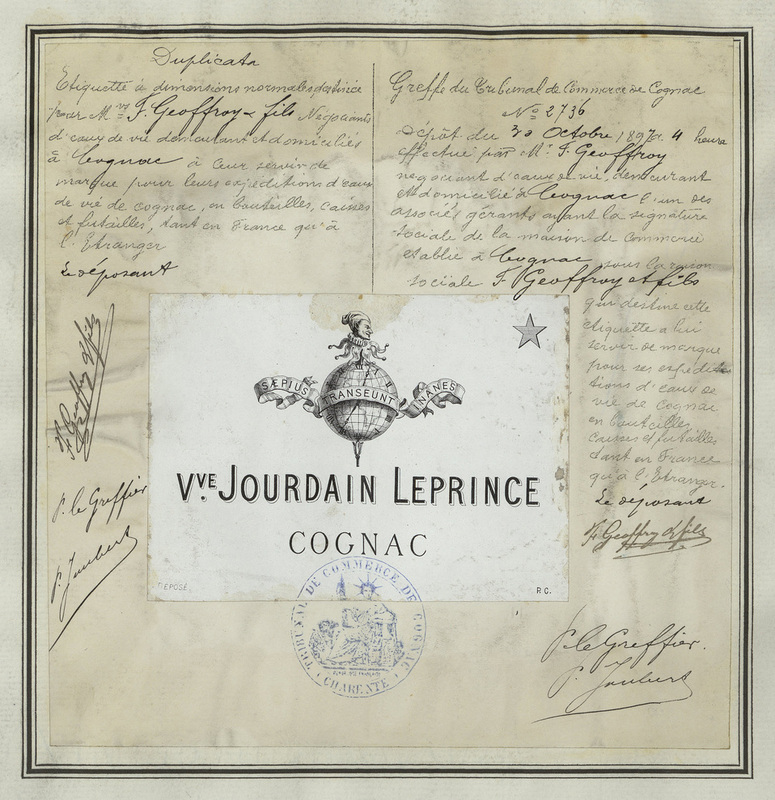 Duplicata
Etiquette à dimensions normales destinée
pour M.rs F. Geoffroy & fils Négociants
d'eaux de vie demeurant et domiciliés
à Cognac à leur servir de
marque pour leurs expéditions d'eaux
de vie de cognac, en bouteilles, caisses
et futailles, tant en France qu'à
l'Etranger
Le déposant
F. Geoffroy & fils
P. le Greffier
P. Joubert
Greffe du Tribunal de Commerce de Cognac
No 2736
Dépôt du 30 Octobre 1897 4 heure
effectué par Mr. F. Geoffroy
négociant d'eaux de vie, demeurant
et domicilié à Cognac l'un des
associés gérants ayant la signature
sociale de la maison de commerce
établie à Cognac sous la raison
sociale F. Geoffroy et fils
qui destine cette
étiquette à lui
servir de marque
pour ses expédi
tions d'eaux de
vie de Cognac
en bouteilles
caisses et futailles
tant en France
qu'à l'Etranger.
Le déposant
F. Geoffroy & fils
P. le Greffier.
P. Joubert
SÆPIUS TRANSEUNT INANES
VVE JOURDAIN LEPRINCE
COGNAC
DEPOSÉ
R.C.
TRIBUNAL DE COMMERCE DE COGNAC
CHARENTE